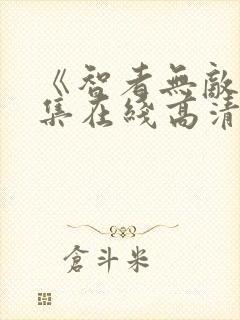 《智者無敵
集在綫高清
倉斗米